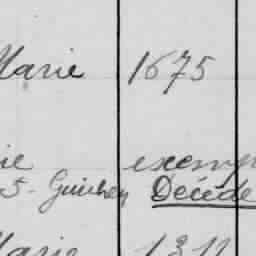 Marie 1675
ie exemp
5 - Guichen Décéde
Marie 1311